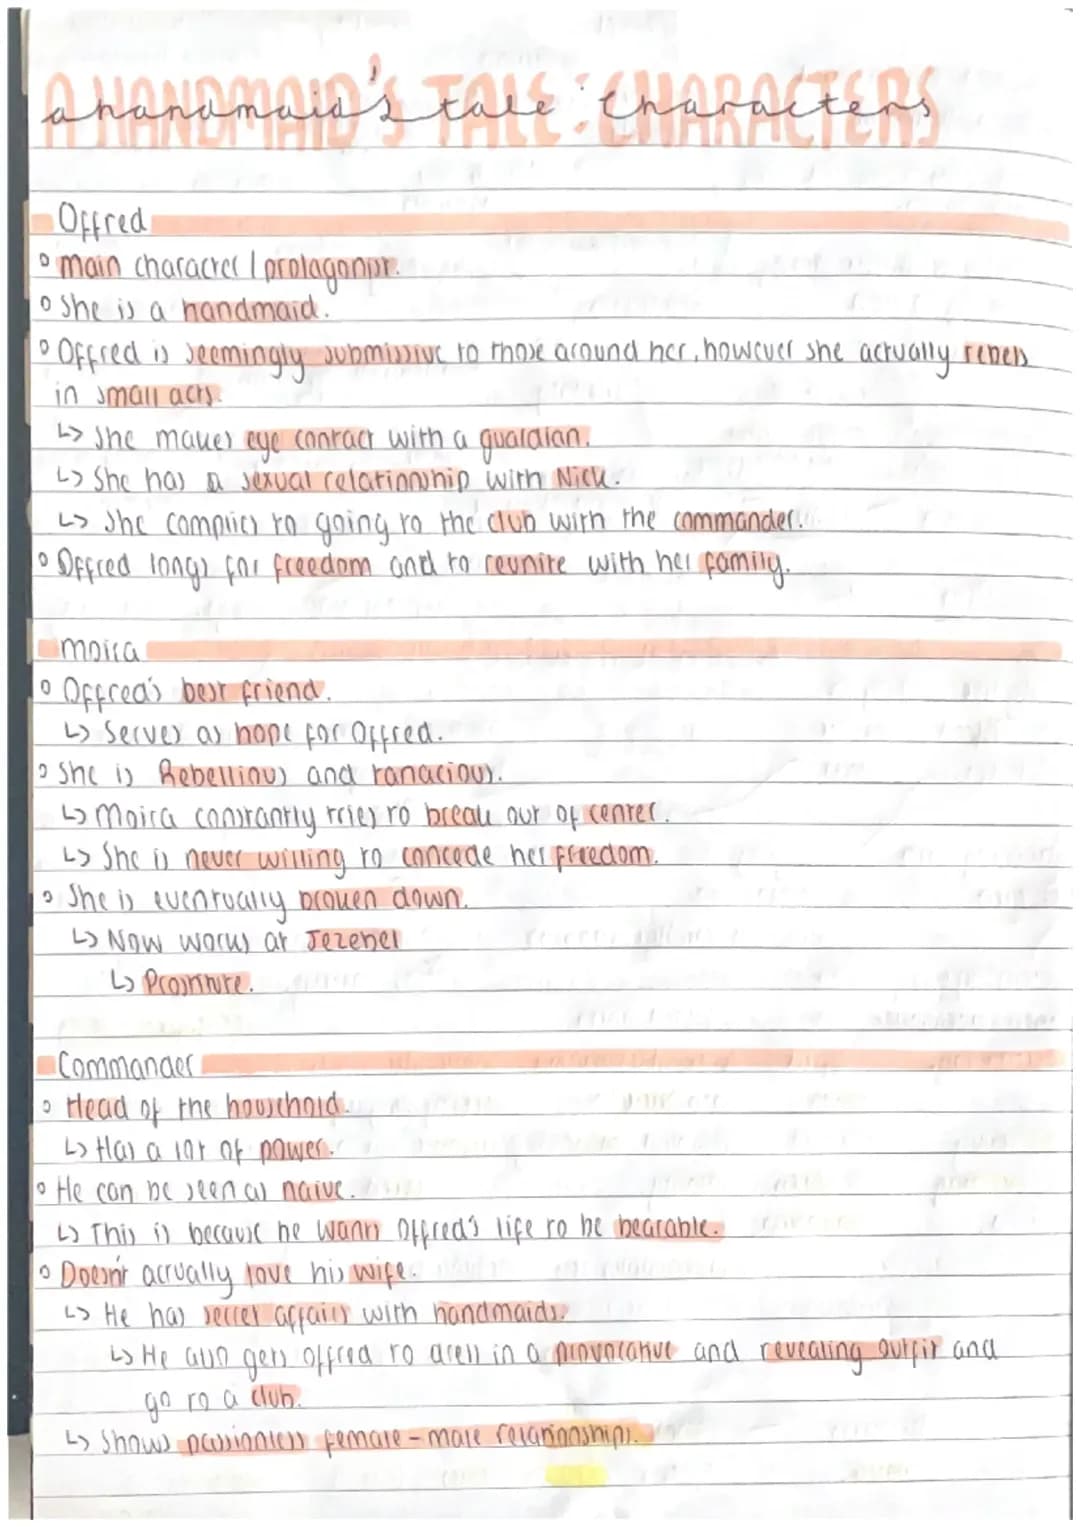 A HANDMAID'S TALE: CHARACTERS
a handmaid's tale: characters
Offred
◦ main character / protagonist.
◦ She is a handmaid.
◦ Offred is seemingly submissive to those around her, however she actually rebels
in small acts.
↳ She makes eye contact with a guardian.
↳ She has a sexual relationship with Nick.
↳ She complies to going to the club with the commander.
◦ Offred longs for freedom and to reunite with her family.
moira
◦ Offred's best friend.
↳ Serves as hope for Offred.
◦ She is Rebellious and tanacious.
↳ Moira constantly tries to break out of center.
↳ She is never willing to concede her freedom.
◦ She is eventually broken down.
↳ Now works at Jezebel
↳ Prostitute.
Commander
◦ Head of the household.
↳ Has a lot of power.
◦ He can be seen as naive.
↳ This is because he wants Offred's life to be bearable.
◦ Doesn't actually love his wife.
↳ He has secret affairs with handmaids.
↳ He also gets offred to dress in a provocative and revealing outfit and
go to a club.
↳ Shows passionless female-male relationships.